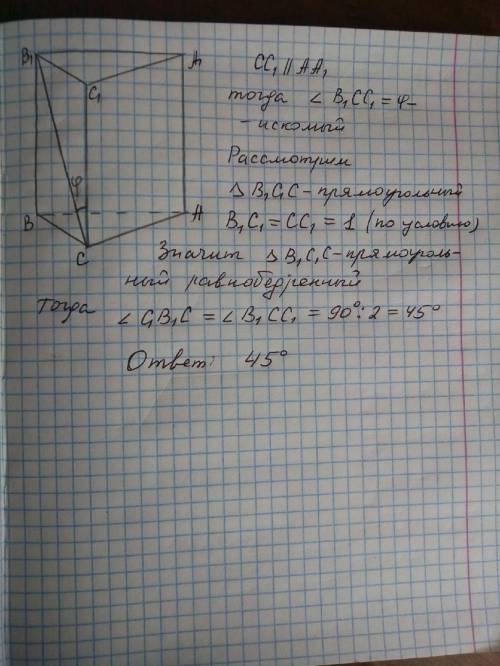 B₁
A₁
C₁
φ
B
A
C
CC₁ || AA₁
тогда ∠ B₁CC₁ = φ –
- искомый
Рассмотрим
△ B₁C₁C – прямоугольный
B₁C₁ = CC₁ = 1 (по условию)
Значит △ B₁C₁C – прямоуголь-
ный равнобедренный
Тогда ∠ C₁B₁C = ∠ B₁CC₁ = 90° : 2 = 45°
Ответ: 45°